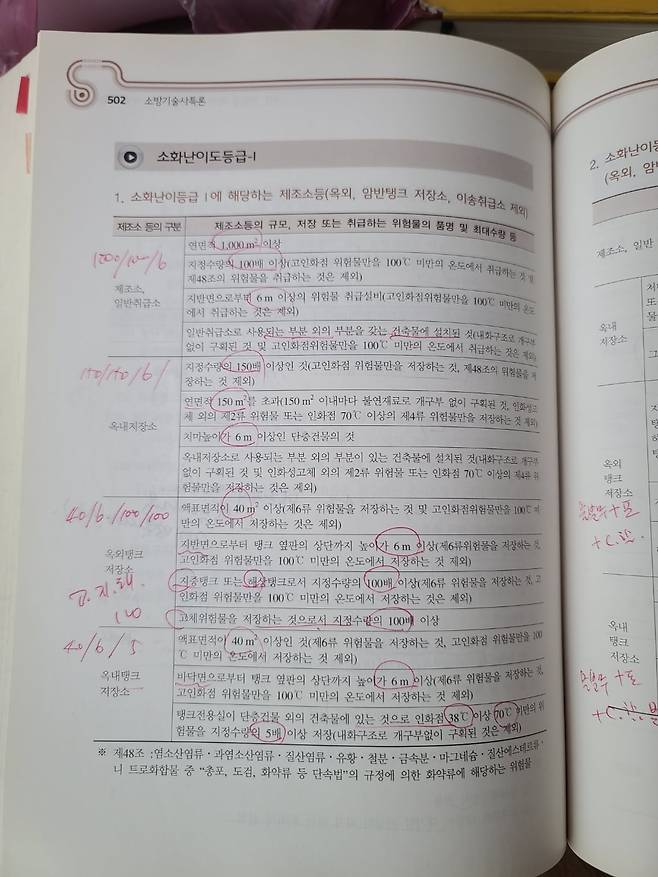 502 소방기술사특론
소화난이도등급-I
1. 소화난이등급 I에 해당하는 제조소등(옥외, 암반탱크 저장소, 이송취급소 제외)
제조소 등의 구분 제조소등의 규모, 저장 또는 취급하는 위험물의 품명 및 최대수량 등
제조소,
일반취급소
연면적 1,000m² 이상
지정수량의 100배 이상(고인화점 위험물만을 100℃ 미만의 온도에서 취급하는 것 및
제48조의 위험물을 취급하는 것은 제외)
지반면으로부터 6m 이상의 위험물 취급설비(고인화점위험물만을 100℃ 미만의 온도
에서 취급하는 것은 제외)
일반취급소로 사용되는 부분 외의 부분을 갖는 건축물에 설치된 것(내화구조로 개구부
없이 구획된 것 및 고인화점위험물만을 100℃ 미만의 온도에서 취급하는 것은 제외)
150/150/6/
옥내저장소
지정수량의 150배 이상인 것(고인화점위험물만을 저장하는 것, 제48조의 위험물을 저
장하는 것 제외)
연면적 150m²를 초과(150m² 이내마다 불연재료로 개구부 없이 구획된 것, 인화성고
체 외의 제2류 위험물 또는 인화점 70℃ 이상의 제4류 위험물만을 저장하는 것 제외)
처마높이가 6m 이상인 단층건물의 것
옥내저장소로 사용되는 부분 외의 부분이 있는 건축물에 설치된 것(내화구조로 개구부
없이 구획된 것 및 인화성고체 외의 제2류 위험물 또는 인화점 70℃ 이상의 제4류 위
험물만을 저장하는 것은 제외)
40/6/100/100
옥외탱크
저장소
고.지.해.
100
액표면적인 40m² 이상(제6류 위험물을 저장하는 것 및 고인화점위험물만을 100℃ 미
만의 온도에서 저장하는 것은 제외)
지반면으로부터 탱크 옆판의 상단까지 높이가 6m 이상(제6류위험물을 저장하는 것,
고인화점 위험물만을 100℃ 미만의 온도에서 저장하는 것은 제외)
지중탱크 또는 해상탱크로서 지정수량의 100배 이상(제6류 위험물을 저장하는 것, 고
인화점 위험물만을 100℃ 미만의 온도에서 저장하는 것은 제외)
고체위험물을 저장하는 것으로서 지정수량의 100배 이상
40/6/5
옥내탱크
저장소
액표면적이 40m² 이상인 것(제6류 위험물을 저장하는 것, 고인화점 위험물만을 100
℃ 미만의 온도에서 저장하는 것은 제외)
바닥면으로부터 탱크 옆판의 상단까지 높이가 6m 이상(제6류 위험물을 저장하는 것,
고인화점 위험물만을 100℃ 미만의 온도에서 저장하는 것은 제외)
탱크전용실이 단층건물 외의 건축물에 있는 것으로 인화점 38℃ 이상 70℃ 미만의 위
험물을 지정수량의 5배 이상 저장(내화구조로 개구부없이 구획된 것은 제외)
※ 제48조 :염소산염류·과염소산염류·질산염류·유황·철분·금속분·마그네슘·질산에스테르류·
니 트로화합물 중 “총포, 도검, 화약류 등 단속법”의 규정에 의한 화약류에 해당하는 위험물
2. 소화난이등
(옥외, 암반
제조소, 일반
옥내
저장소
옥외
탱크
저장소
옥내
탱크
저장소